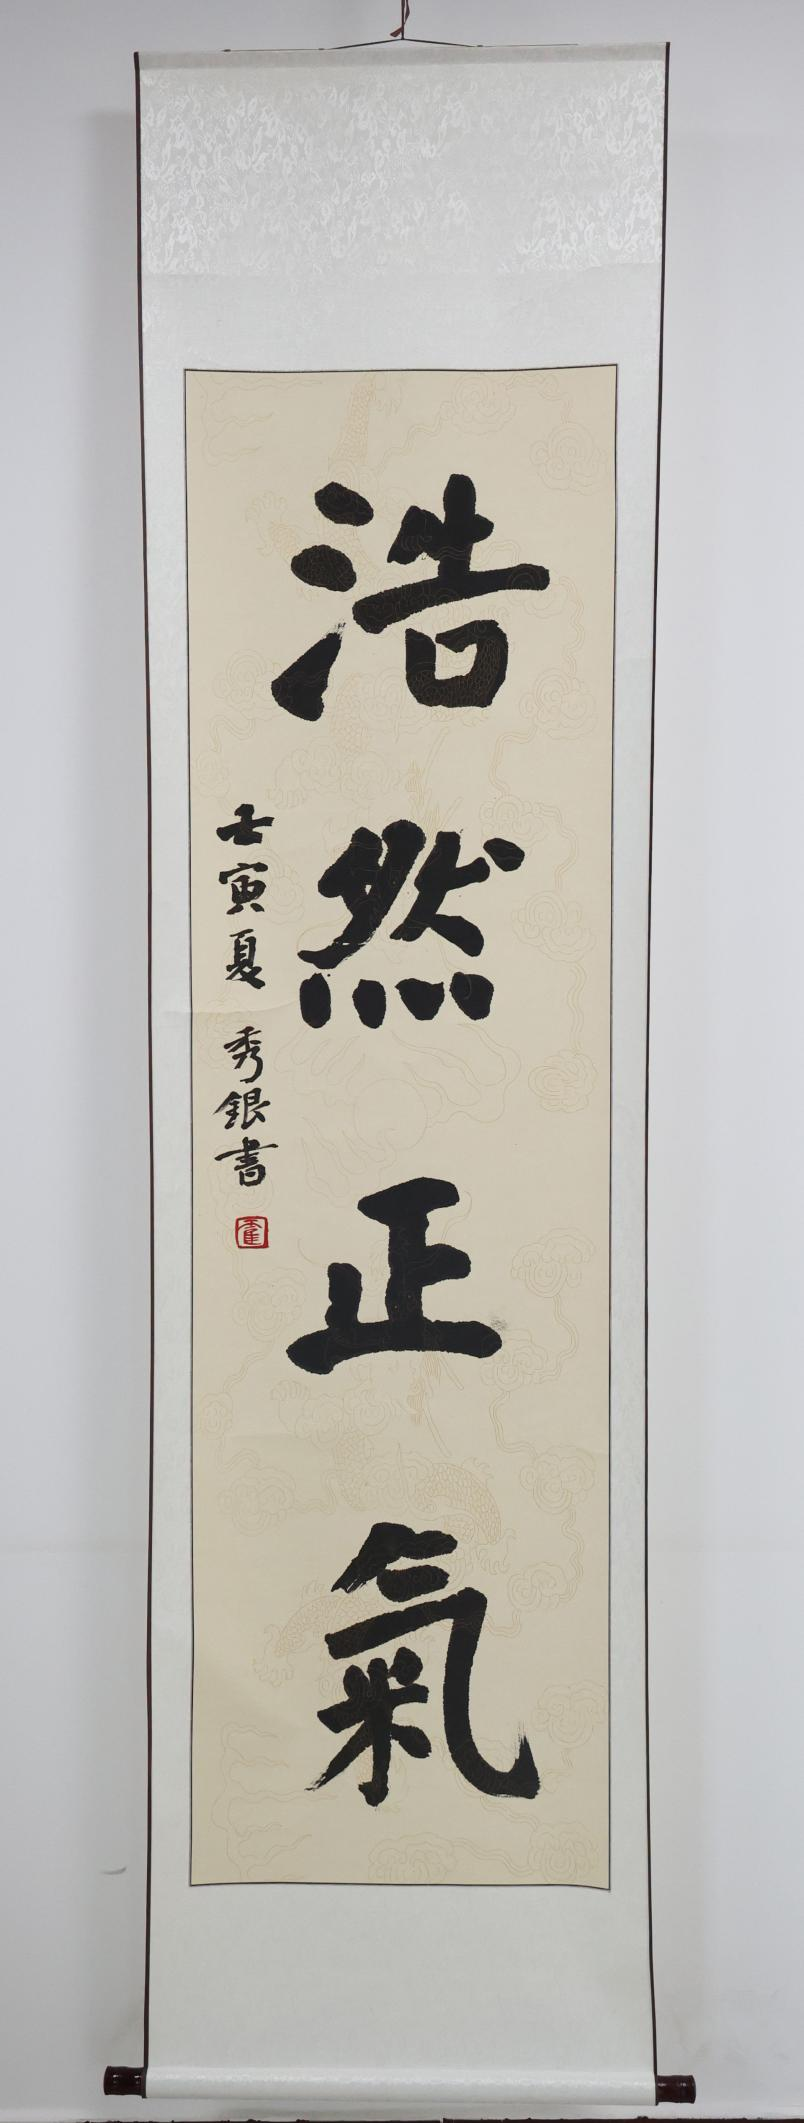 浩然正氣
壬寅夏 秀銀書